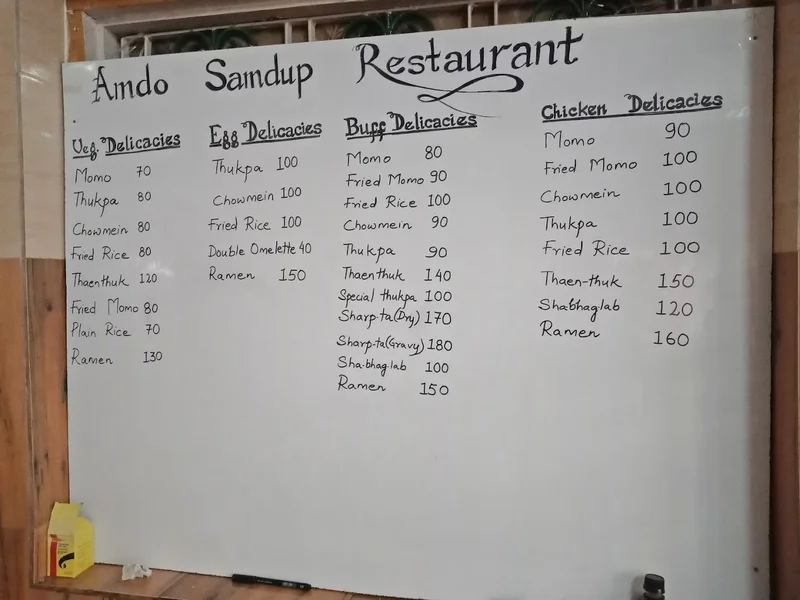 Amdo Samdup Restaurant
Veg. Delicacies
Momo 70
Thukpa 80
Chowmein 80
Fried Rice 80
Thaenthuk 120
Fried Momo 80
Plain Rice 70
Ramen 130
Egg Delicacies
Thukpa 100
Chowmein 100
Fried Rice 100
Double Omelette 40
Ramen 150
Buff Delicacies
Momo 80
Fried Momo 90
Fried Rice 100
Chowmein 90
Thukpa 90
Thaenthuk 140
Special thukpa 100
Sharp-ta(Dry) 170
Sharp-ta(Gravy) 180
Sha-bhag-lab 100
Ramen 150
Chicken Delicacies
Momo 90
Fried Momo 100
Chowmein 100
Thukpa 100
Fried Rice 100
Thaen-thuk 150
Shabhaglab 120
Ramen 160